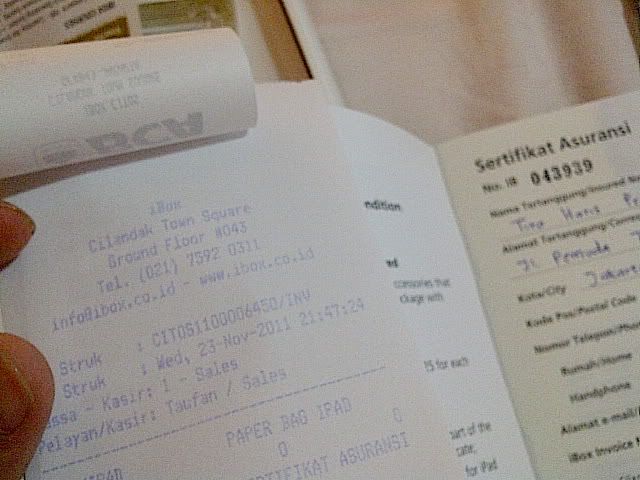 BCA
iBox
Cilandak Town Square
Ground Floor #043
Tel. (021) 7592 0311
info@ibox.co.id - www.ibox.co.id
Struk : CITOS1100006450/INV
Struk : Wed, 23-Nov-2011 21:47:24
assa - Kasir: 1 - Sales
Pelayan/Kasir: Taufan / Sales
PAPER BAG IPAD
0 0
RTIFIKAT ASURANSI
ndition
ed
ccessories that
ckage with
15 for each
part of the
cate;
for iPad
Sertifikat Asuransi
No. IB 043939
Nama Tertanggung/Insured
Alamat Tertanggung/
Jl. Pemuda
Kota/City Jakarta
Kode Pos/Postal Code
Nomor Telepon/
Rumah/Home
Handphone
Alamat e-mail/
iBox Invoice